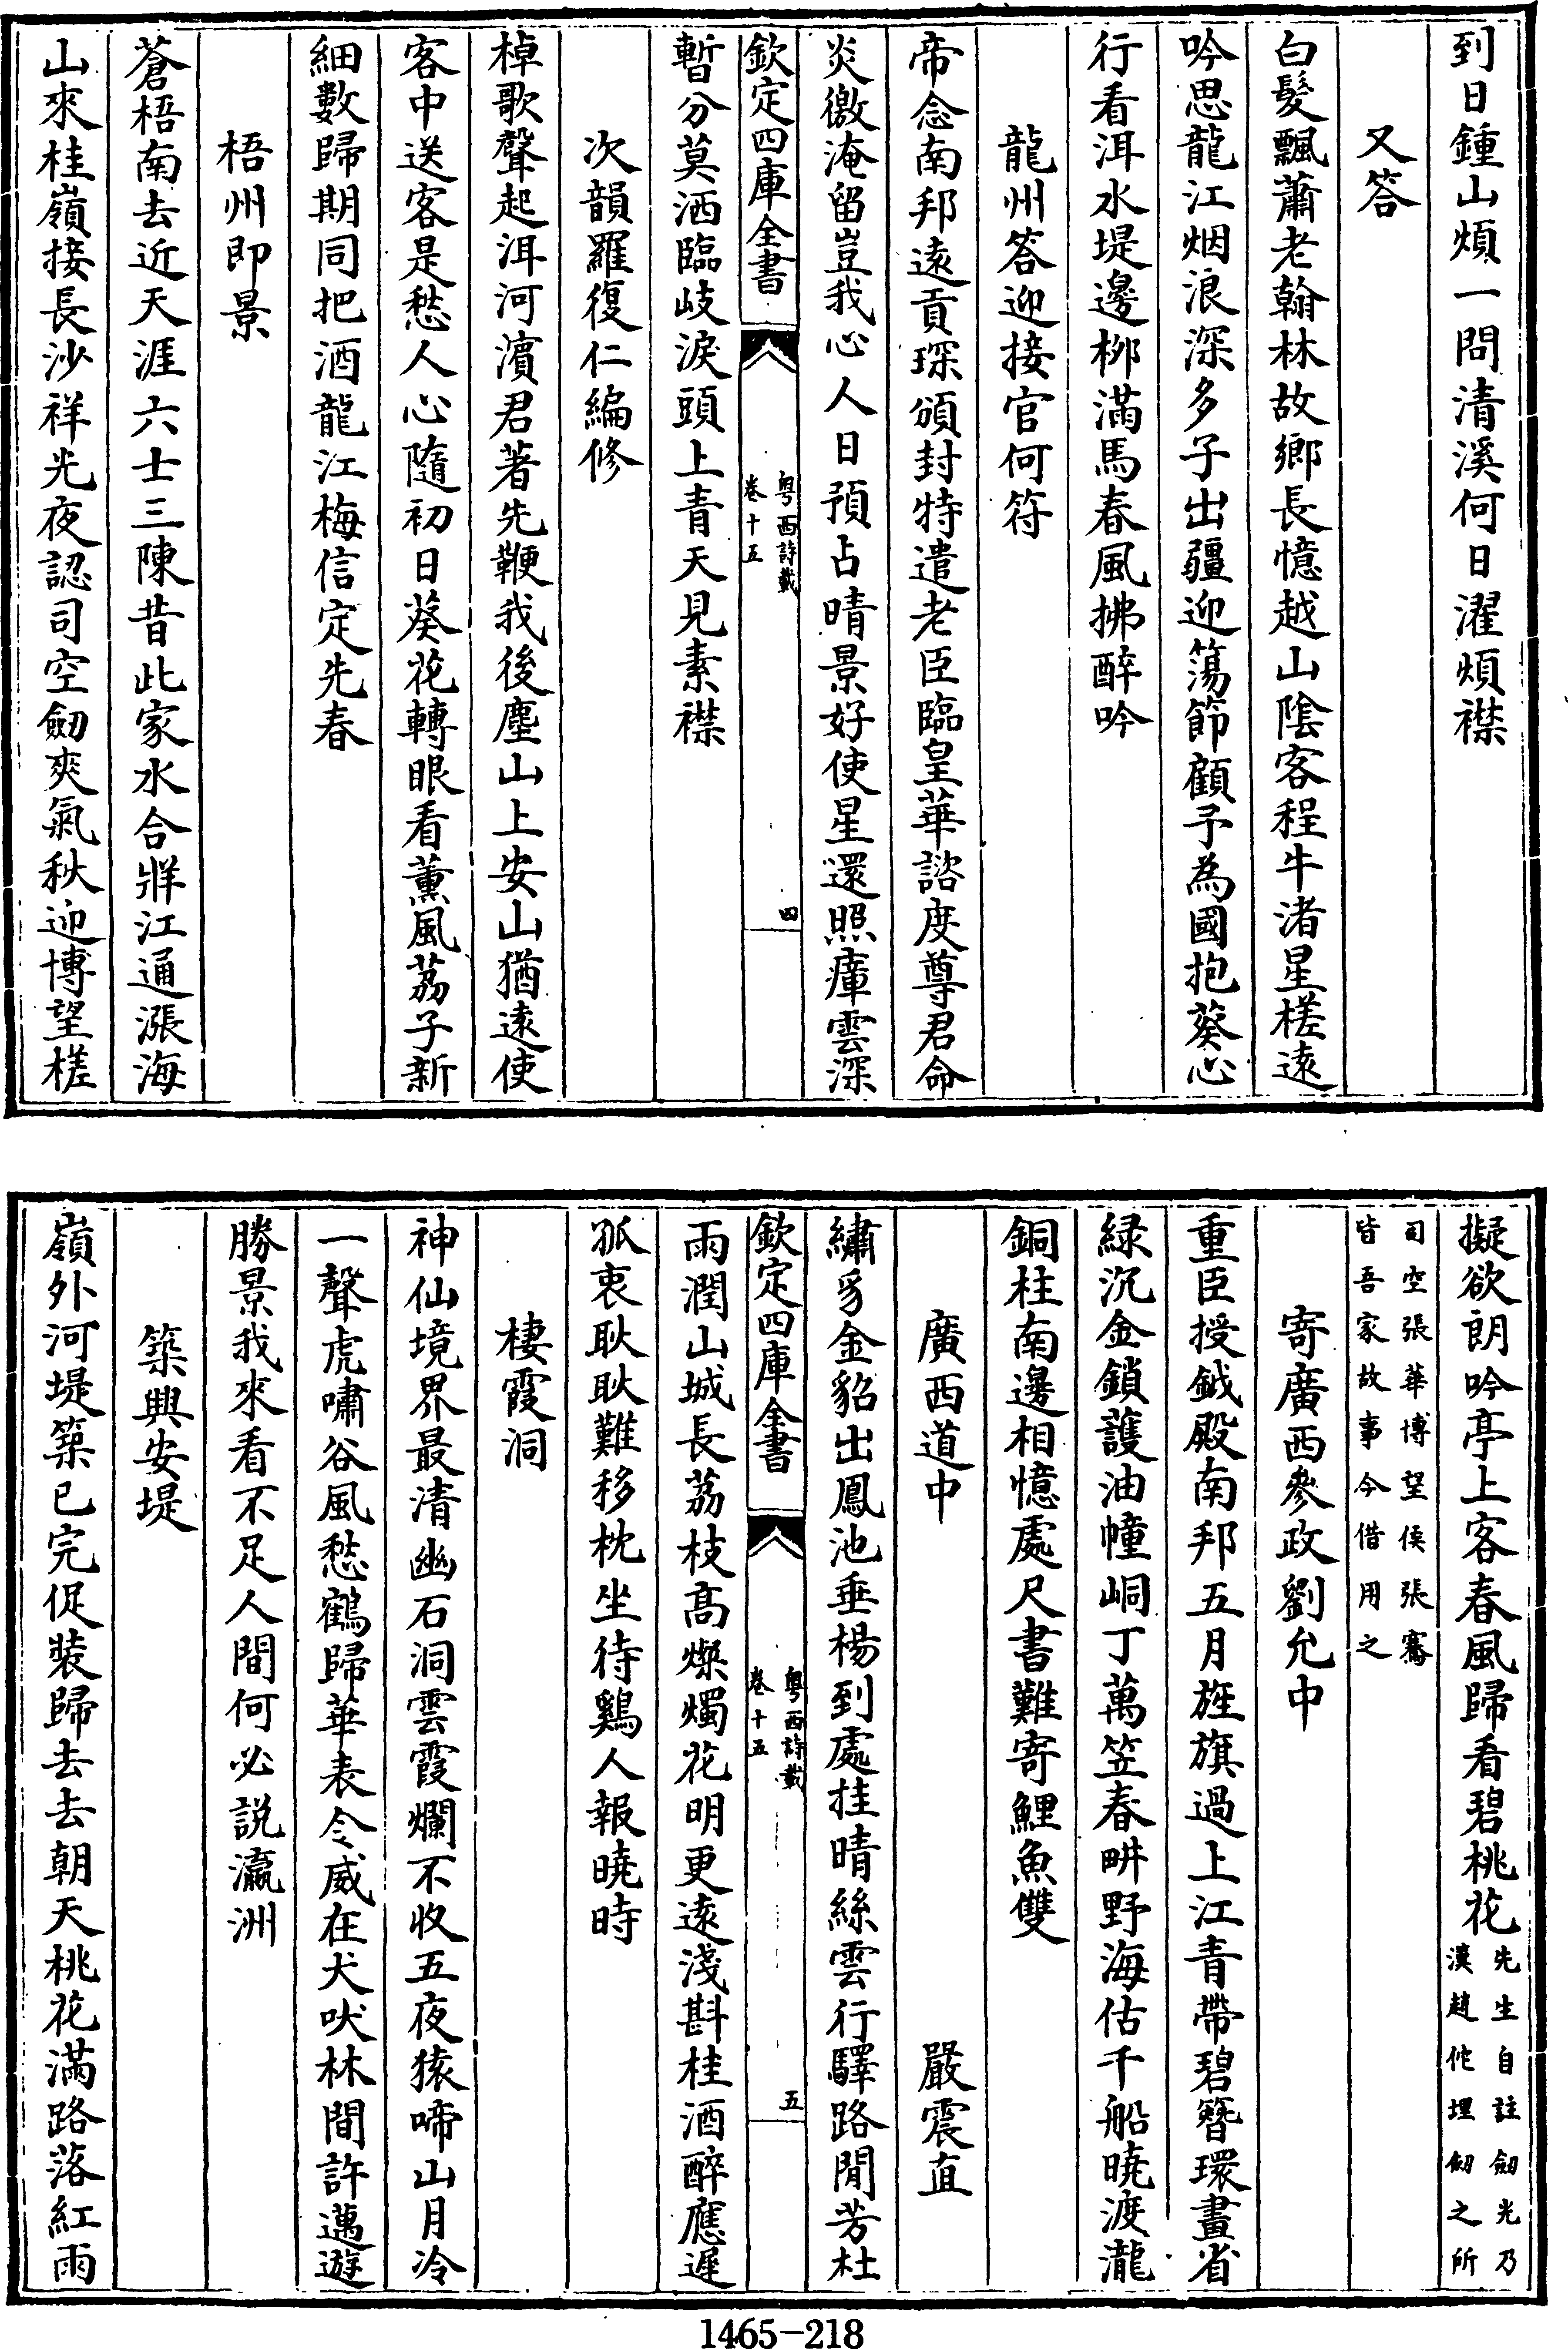 到日鍾山煩一問清溪何日濯煩襟
又答
白髮飄蕭老翰林故鄉長憶越山陰客程牛渚星槎遠
吟思龍江烟浪深多子出疆迎蕩節顧予為國抱葵心
行看洱水堤邊柳滿馬春風拂醉吟
龍州答迎接官何符
帝念南邦遠貢琛頒封特遣老臣臨皇華諮度尊君命
炎徼淹留豈我心人日預占晴景好使星還照瘴雲深
欽定四庫全書
粤西詩載
卷十五
四
暫分莫洒臨岐淚頭上青天見素襟
次韻羅復仁編修
棹歌聲起洱河濵君著先鞭我後塵山上安山猶遠使
客中送客是愁人心隨初日葵花轉眼看薰風荔子新
細數歸期同把酒龍江梅信定先春
梧州即景
蒼梧南去近天涯六士三陳昔此家水合牂江通漲海
山來桂嶺接長沙祥光夜認司空劒爽氣秋迎博望槎
擬欲朗吟亭上客春風歸看碧桃花
先生自註劒光乃
漢趙佗埋劒之所
司空張華博望侯張騫
皆吾家故事今借用之
寄廣西參政劉允中
重臣授鉞殿南邦五月旌旗過上江青帶碧簪環畫省
緑沉金鎖護油幢峒丁萬笠春畊野海估千船曉渡瀧
銅柱南邊相憶處尺書難寄鯉魚雙
廣西道中
嚴震直
繡豸金貂出鳳池垂楊到處挂晴絲雲行驛路閒芳杜
欽定四庫全書
粤西詩載
卷十五
五
雨潤山城長荔枝高燦燭花明更遠淺斟桂酒醉應遲
孤衷耿耿難移枕坐待鷄人報曉時
棲霞洞
神仙境界最清幽石洞雲霞爛不收五夜猿啼山月冷
一聲虎嘯谷風愁鶴歸華表令威在犬吠林間許邁遊
勝景我來看不足人間何必説瀛洲
築興安堤
嶺外河堤築已完促裝歸去去朝天桃花滿路落紅雨
1465-218